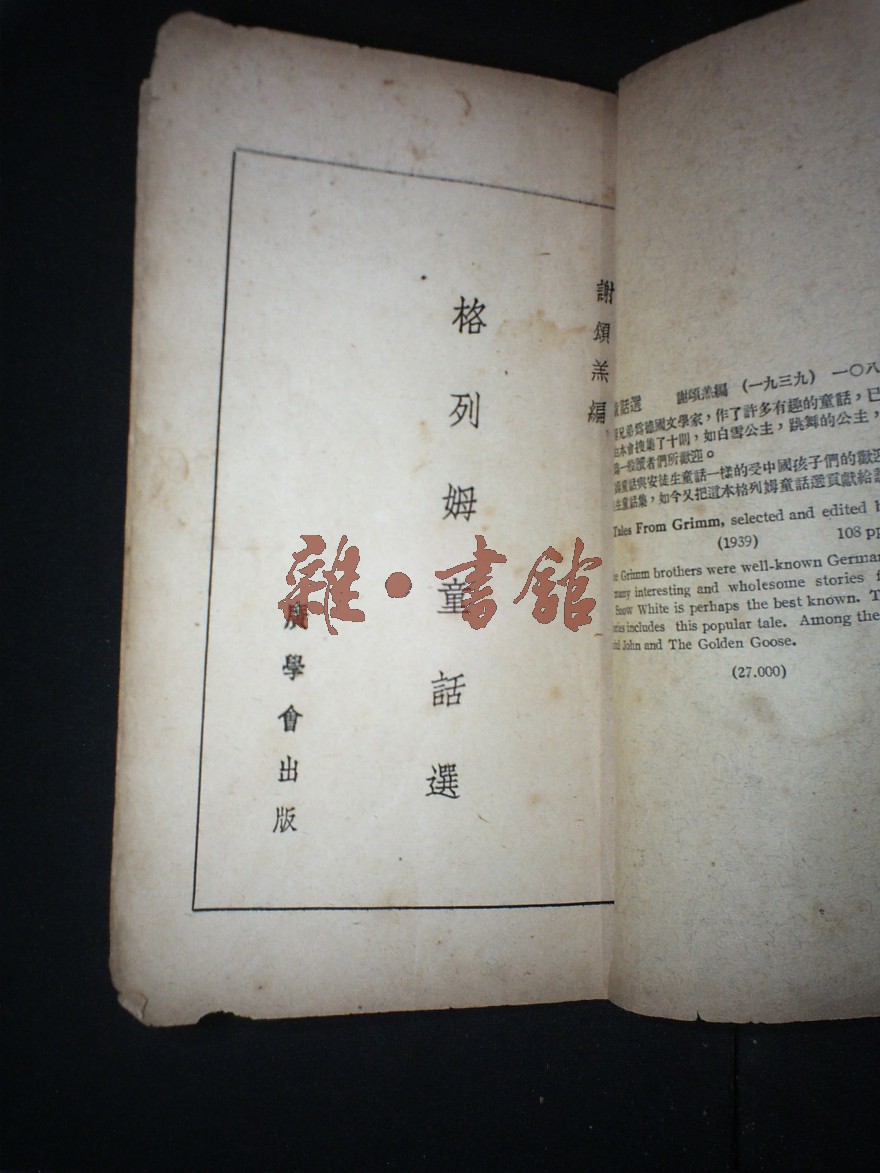 謝頌羔編
格列姆童話選
廣學會出版
雜·書館
話選 謝頌羔編 (一九三九) 一〇八
兄弟爲德國文學家,作了許多有趣的童話,已
本會搜集了十則,如白雪公主,跳舞的公主,
一般讀者們所歡迎。
童話與安徒生童話一樣的受中國孩子們的歡迎
生童話集,如今又把這本格列姆童話選貢獻給
Tales From Grimm, selected and edited b
(1939) 108 pp
Grimm brothers were well-known German
many interesting and wholesome stories f
Snow White is perhaps the best known. T
ries includes this popular tale. Among the
John and The Golden Goose.
(27.000)